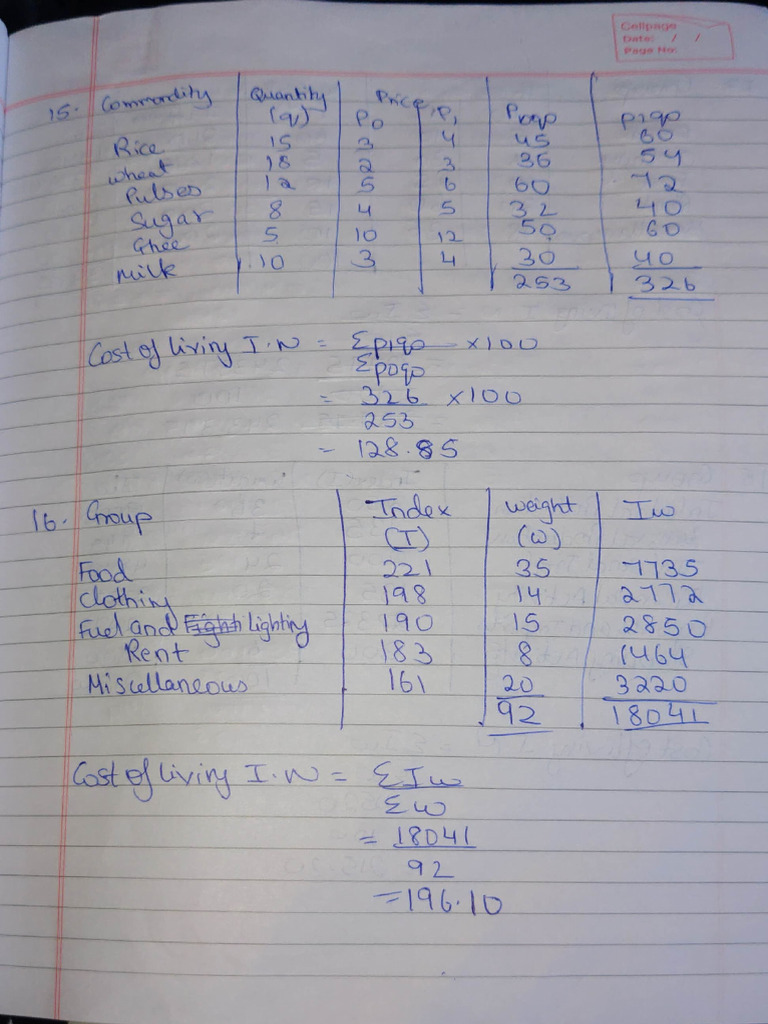 Cellpage
Date: / /
Page No:
15. Commondity Quantity (q) Price P0 P1 P0q0 P1q0
Rice 15 3 4 45 60
wheat 18 2 3 36 54
Pulses 12 5 6 60 72
Sugar 8 4 5 32 40
Ghee 5 10 12 50 60
Milk 10 3 4 30 40
253 326
Cost of living I.N = Σp1q0 ×100
Σp0q0
= 326 ×100
253
= 128.85
16. Group Index weight Iw
(I) (w)
Food 221 35 7735
Clothing 198 14 2772
Fuel and Lighting 190 15 2850
Rent 183 8 1464
Miscellaneous 161 20 3220
92 18041
Cost of living I.N = ΣIw
Σw
= 18041
92
= 196.10